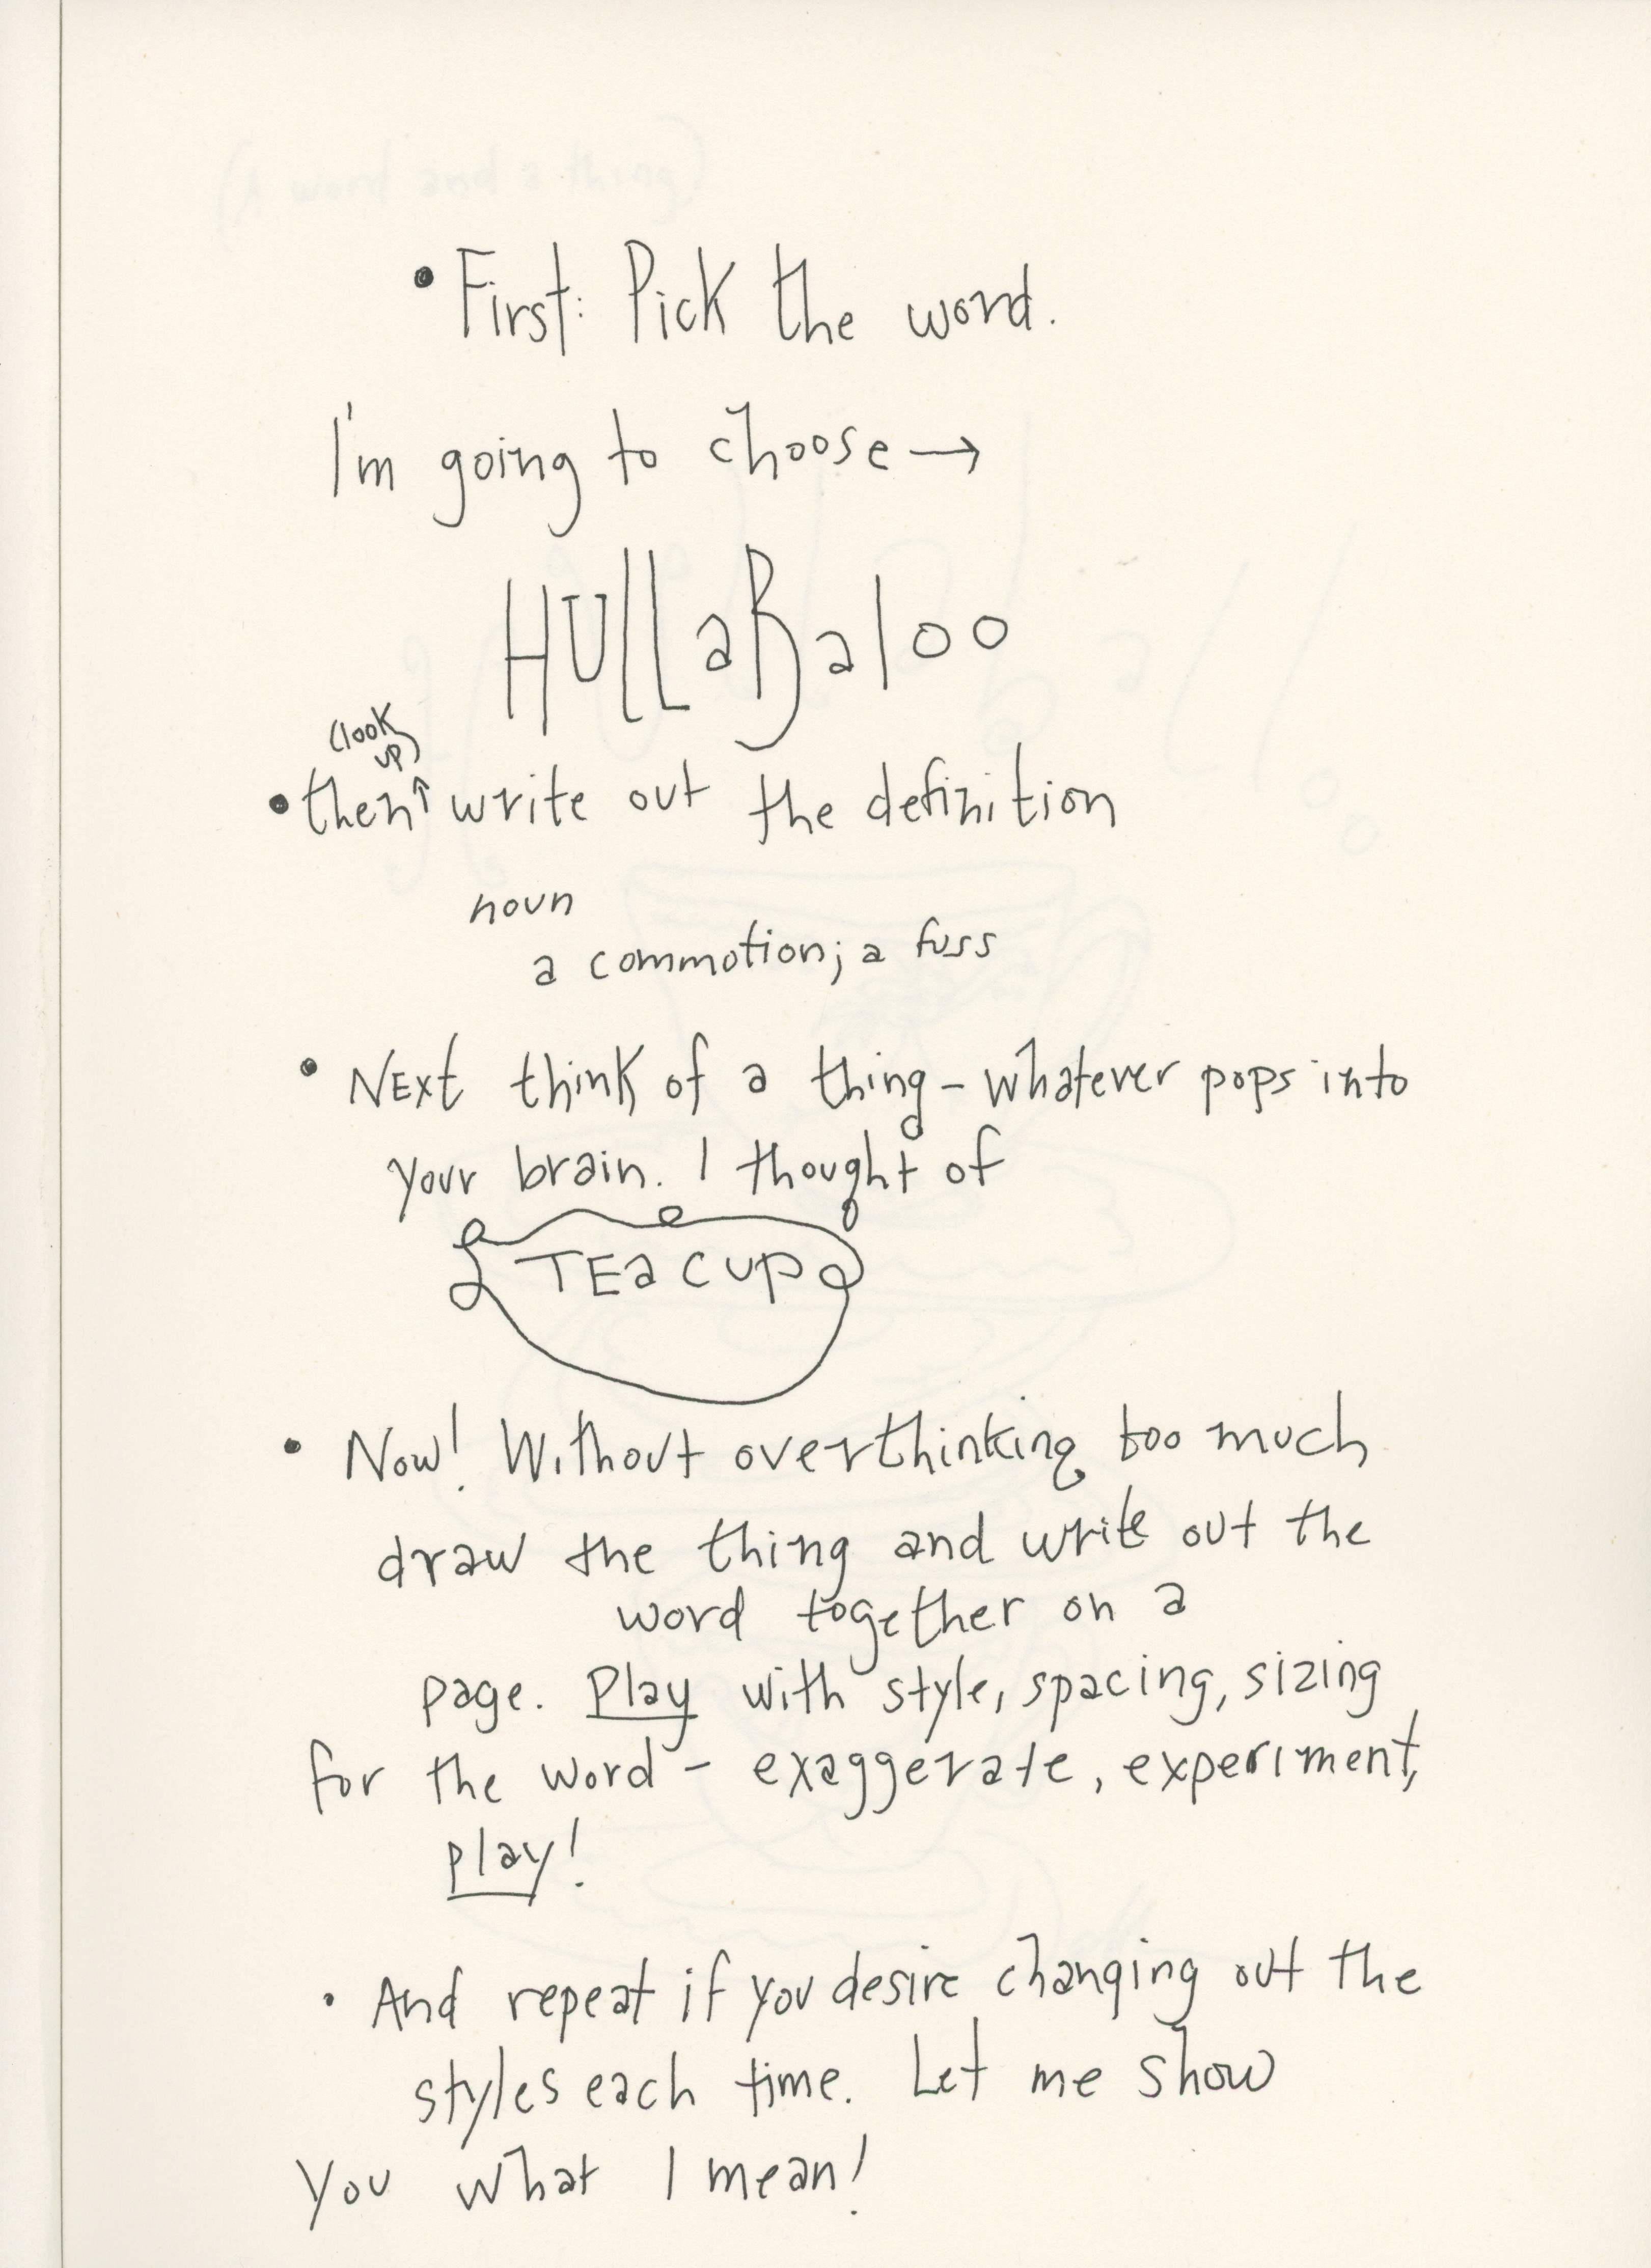 (A word and a thing)
• First: Pick the word.
I'm going to choose →
HULLaBaloo
(look
up)
• then ↑ write out the definition
noun
a commotion; a fuss
• NExt think of a thing – whatever pops into
your brain. I thought of
TEacup
• Now! Without overthinking too much
draw the thing and write out the
word together on a
page. Play with style, spacing, sizing
for the word – exaggerate, experiment,
play!
• And repeat if you desire changing out the
styles each time. Let me show
You what I mean!